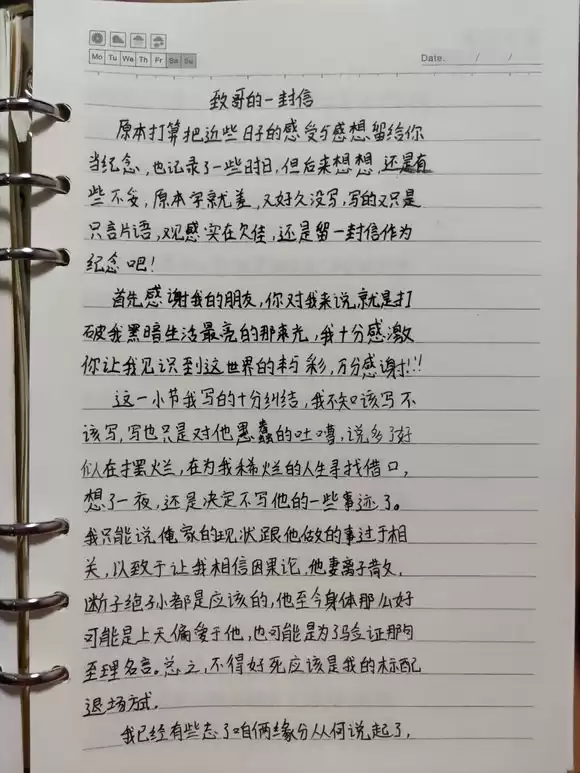 Mo Tu We Th Fr Sa Su
Date. / /
致哥的一封信
原本打算把近些日子的感受与感想留给你
当纪念，也记录了一些时日，但后来想想，还是有
些不妥，原本字就差，又好久没写，写的又只是
只言片语，观感实在欠佳，还是留一封信作为
纪念吧！
首先感谢我的朋友，你对我来说，就是打
破我黑暗生活最亮的那束光，我十分感激
你让我见识到这世界的精彩，万分感谢!!!
这一小节我写的十分纠结，我不知该写不
该写，写也只是对他愚蠢的吐嘈，说多了好
似在摆烂，在为我稀烂的人生寻找借口，
想了一夜，还是决定不写他的一些事迹了。
我只能说，俺家的现状跟他做的事过于相
关，以致于让我相信因果论，他妻离子散，
断子绝孙都是应该的，他至今身体那么好
可能是上天偏爱于他，也可能是为了验证那句
至理名言。总之，不得好死应该是我的标配
退场方式。
我已经有些忘了咱俩缘分从何说起了，